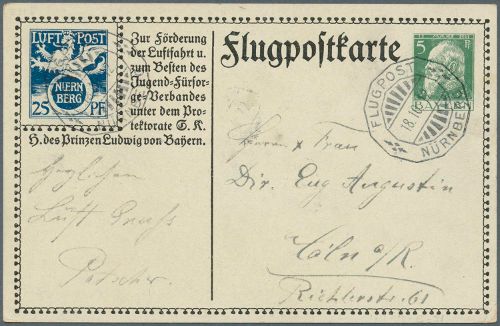 LUFT POST
NIERN
BERG
25 PF
Zur Förderung
der Luftfahrt u.
zum Besten des
Jugend-Fürsor-
ge-Verbandes
unter dem Pro-
tektorate S. K.
H. des Prinzen Ludwig von Bayern.
Flugpostkarte
5
BAYERN
FLUGPOST
18.10
NÜRNBE
Herrn u Frau
Dir. Eug Augustin
Cöln a/R.
Richterstr. 61
Herzlichen
Luft Gruss